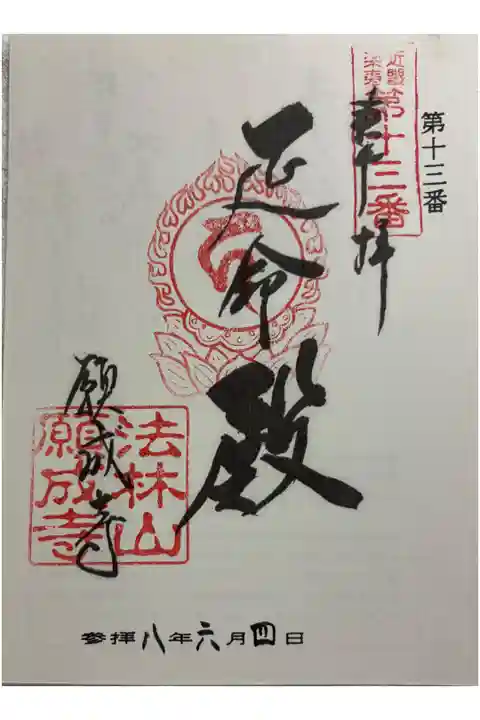 第十三番
近畿
楽寿
第十三番
奉拝
延命殿
願成寺
法林山
願成寺
参拝八年六月四日